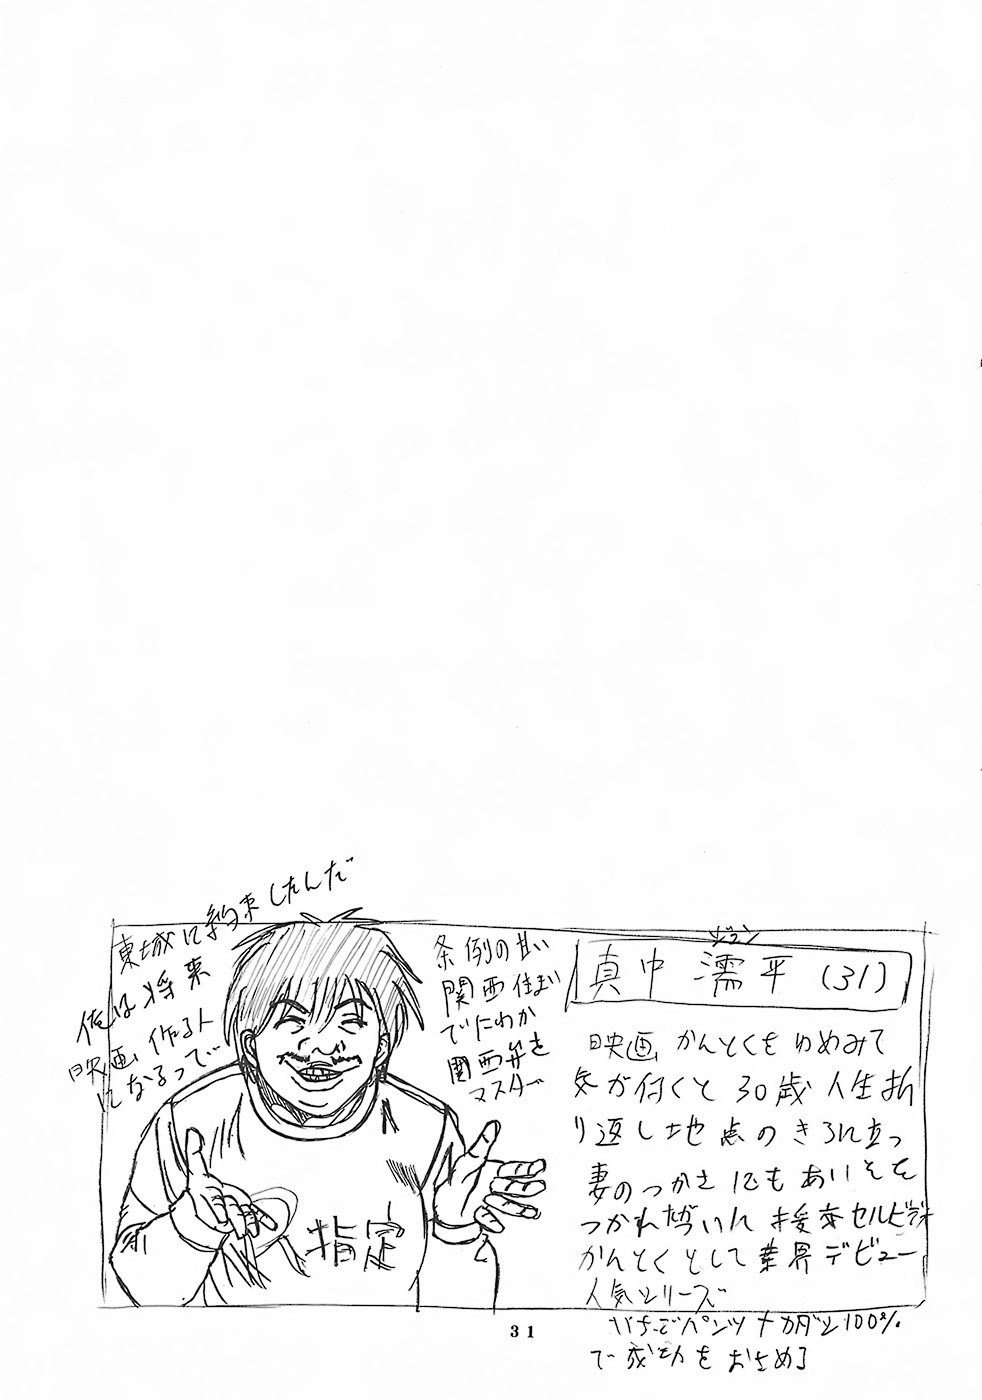 東城に約束したんだ
俺は将来
映画作る人
になるって
条例の甘い
関西住まい
でにわか
関西弁を
マスター
指定
ジュン
真中 濡平 (31)
映画かんとくをゆめみて
気が付くと 30歳 人生折
り返し地点のきろに立つ
妻のつかさにもあいそを
つかれ
かんとくとして業界デビュー
人気シリーズ
いちごパンツ 100%
で成功をおさめる
31